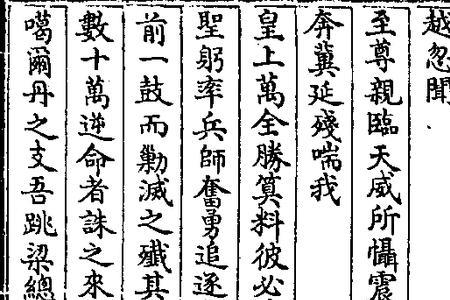 越忽聞
至尊親臨天威所懾震
奔冀延殘喘我
皇上萬全勝筭料彼必
聖躬率兵師奮勇追逐
前一鼓而勦滅之殱其
數十萬逆命者誅之來
噶爾丹之支吾跳梁總